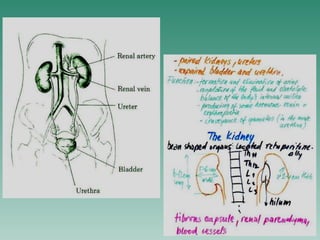 Renal artery
Renal vein
Ureter
Bladder
Urethra
- paired kidneys, ureters
- unpaired bladder and urethra.
Function: - formation and elimination of urine
- regulation of the fluid and electrolyte
balance of the body's internal
- production of some hormones renin &
erythropoietin
- conveyance of gametes (in the male
urethra)
The Kidney
bean shaped organs located retroperitone-
ally
Th 11
Th 12
L 1
L 2
L 3
hilum
fibrous capsule, renal parenchyma,
blood vessels